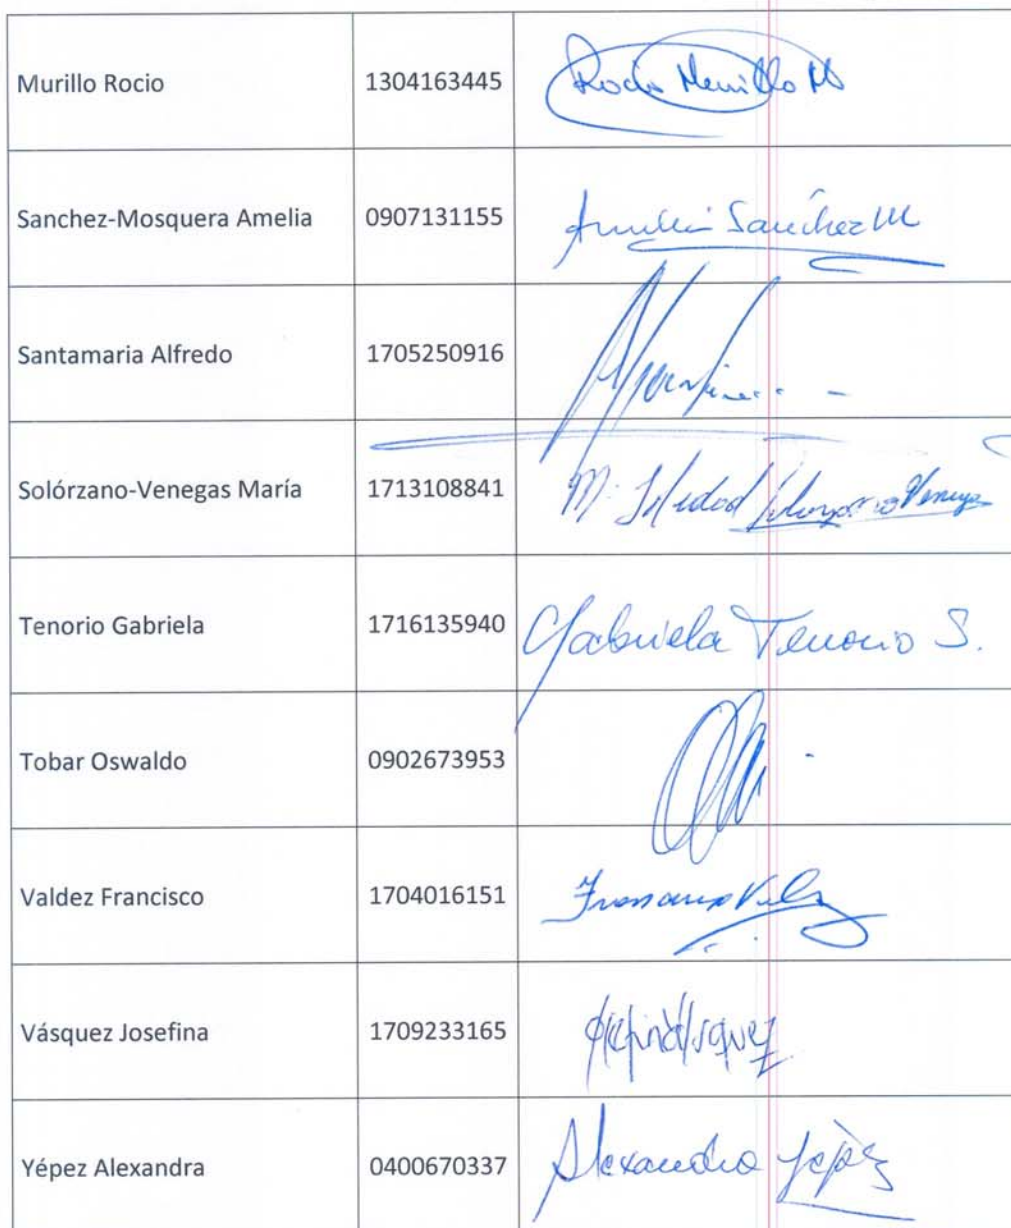 Murillo Rocio 1304163445 Rocio Murillo M
Sanchez-Mosquera Amelia 0907131155 Amelia Sanchez M
Santamaria Alfredo 1705250916
Solórzano-Venegas María 1713108841 M. Soledad Solorzano Venegas
Tenorio Gabriela 1716135940 Gabriela Tenorio S.
Tobar Oswaldo 0902673953
Valdez Francisco 1704016151 Francisco Valdez
Vásquez Josefina 1709233165 Josefina Vásquez
Yépez Alexandra 0400670337 Alexandra Yépez